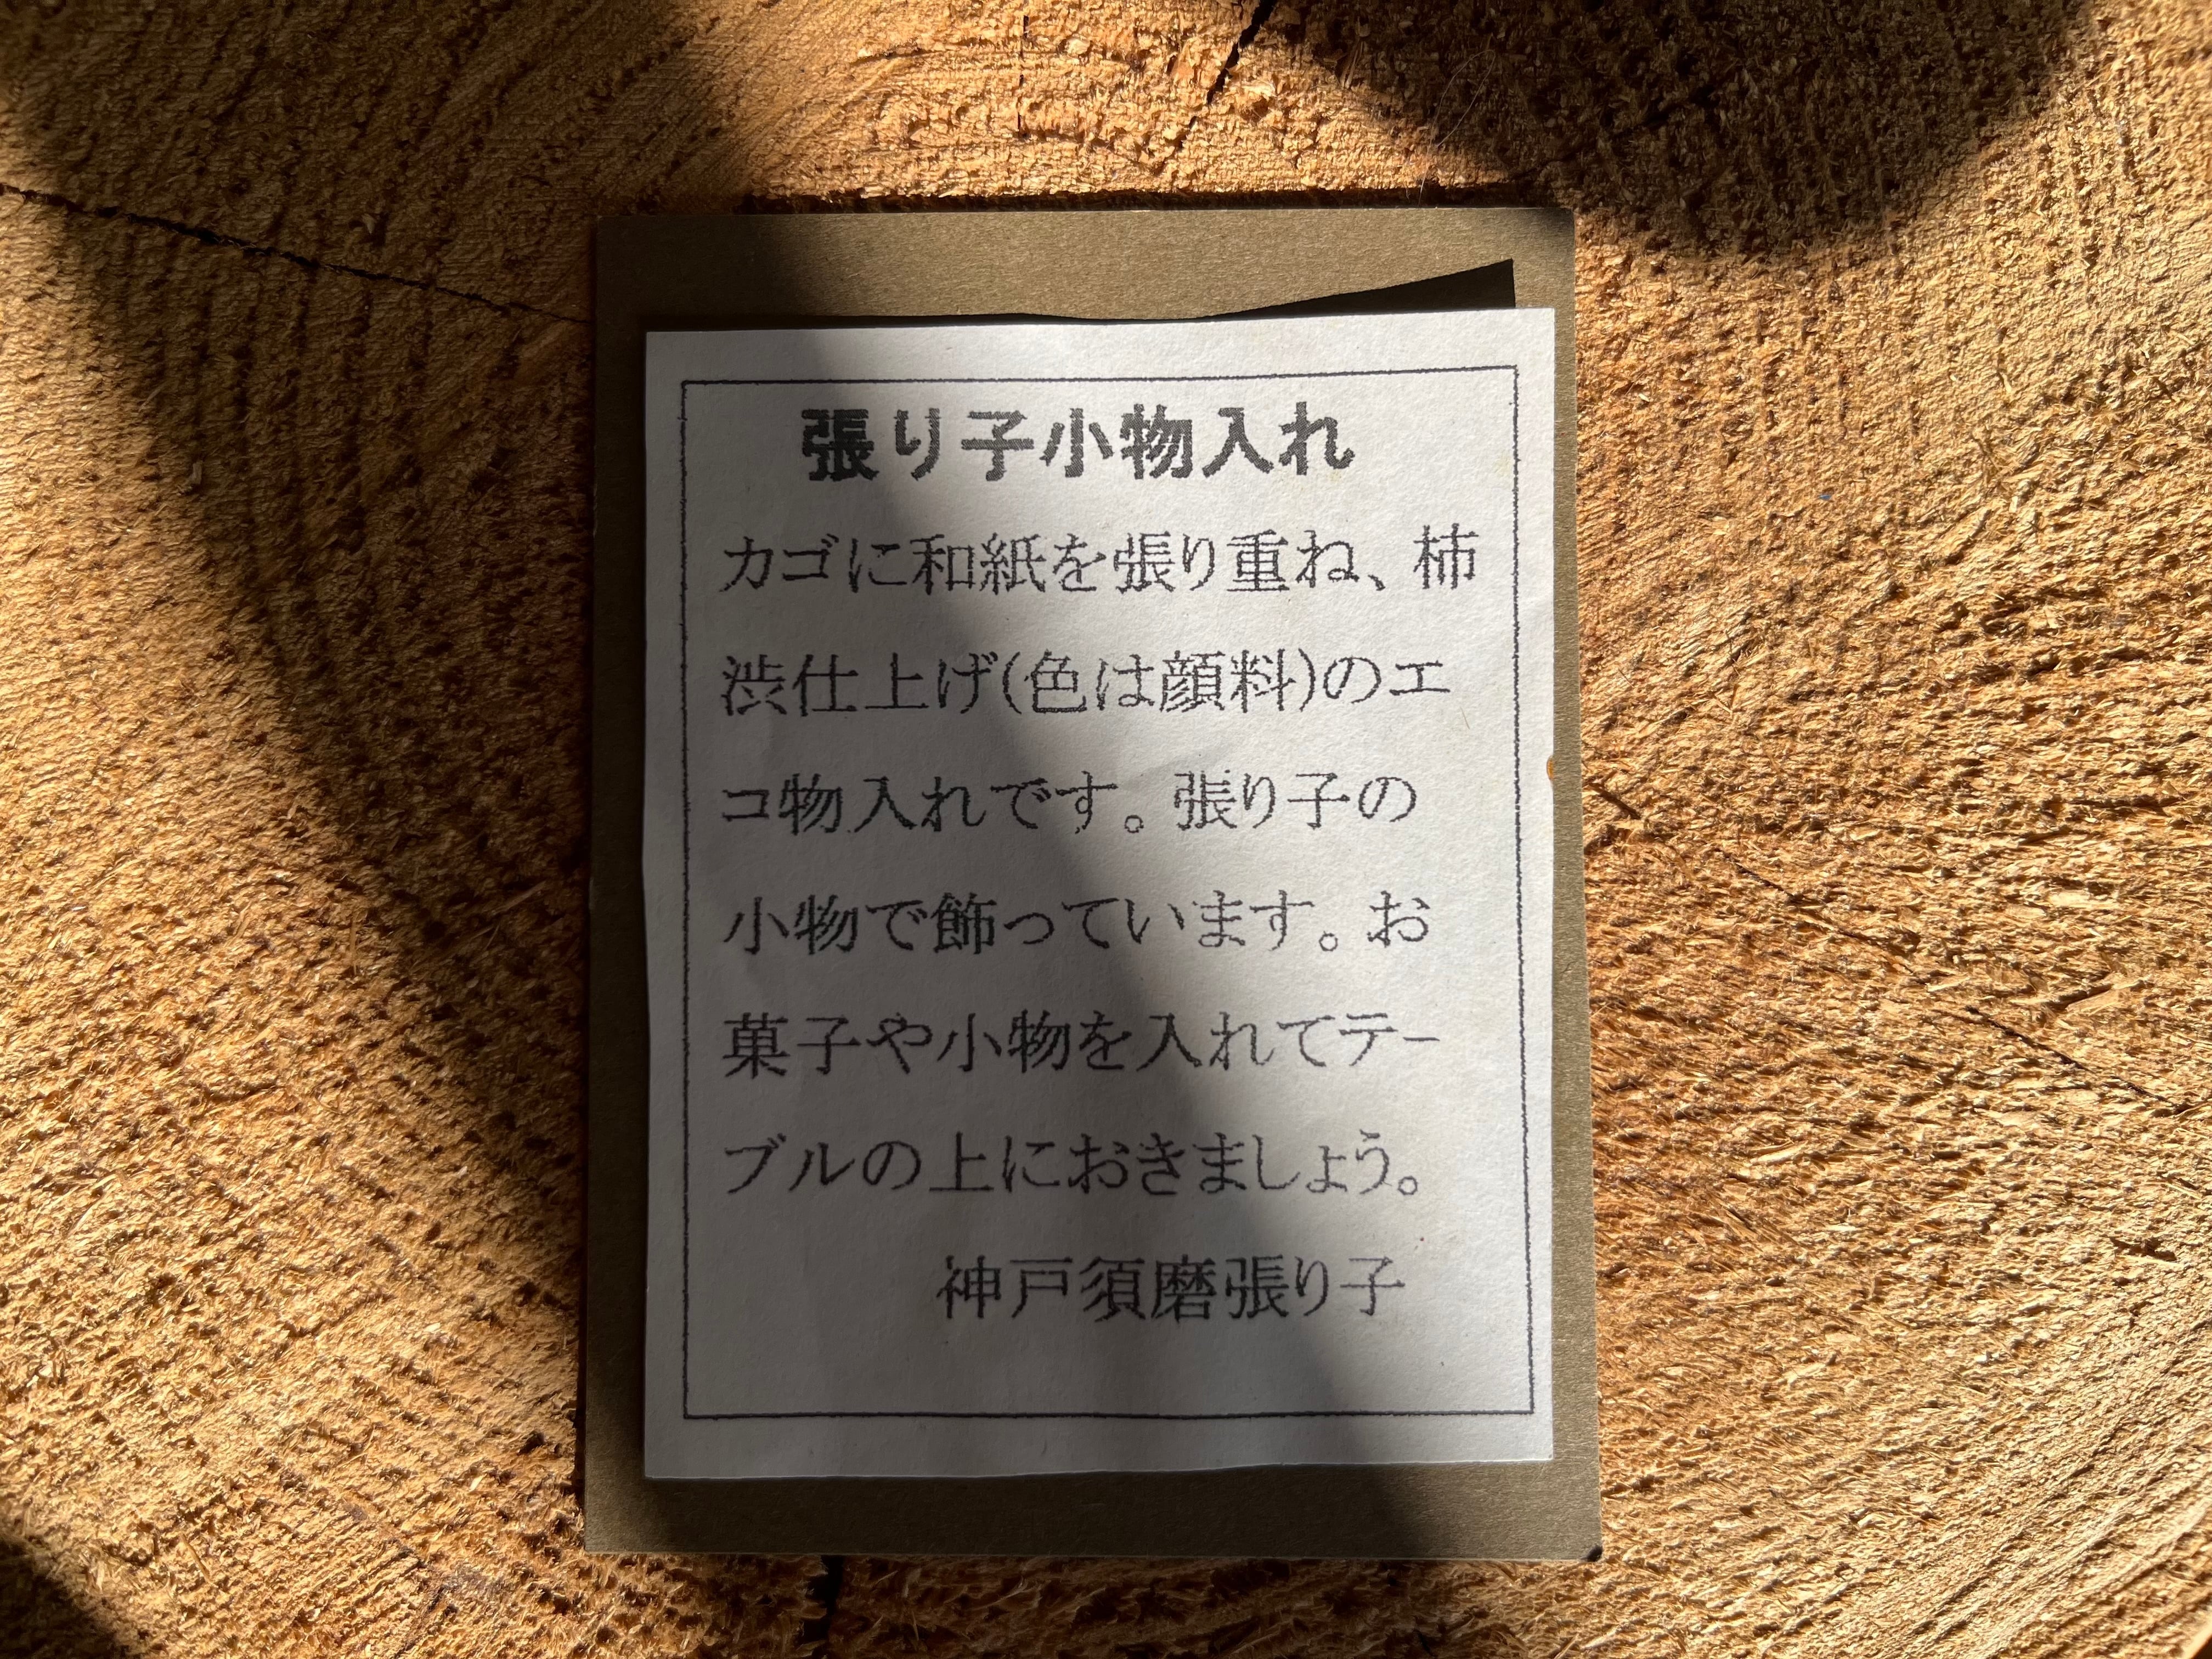 張り子小物入れ
カゴに和紙を張り重ね、柿
渋仕上げ(色は顔料)のエ
コ物入れです。張り子の
小物で飾っています。お
菓子や小物を入れてテー
ブルの上におきましょう。
神戸須磨張り子